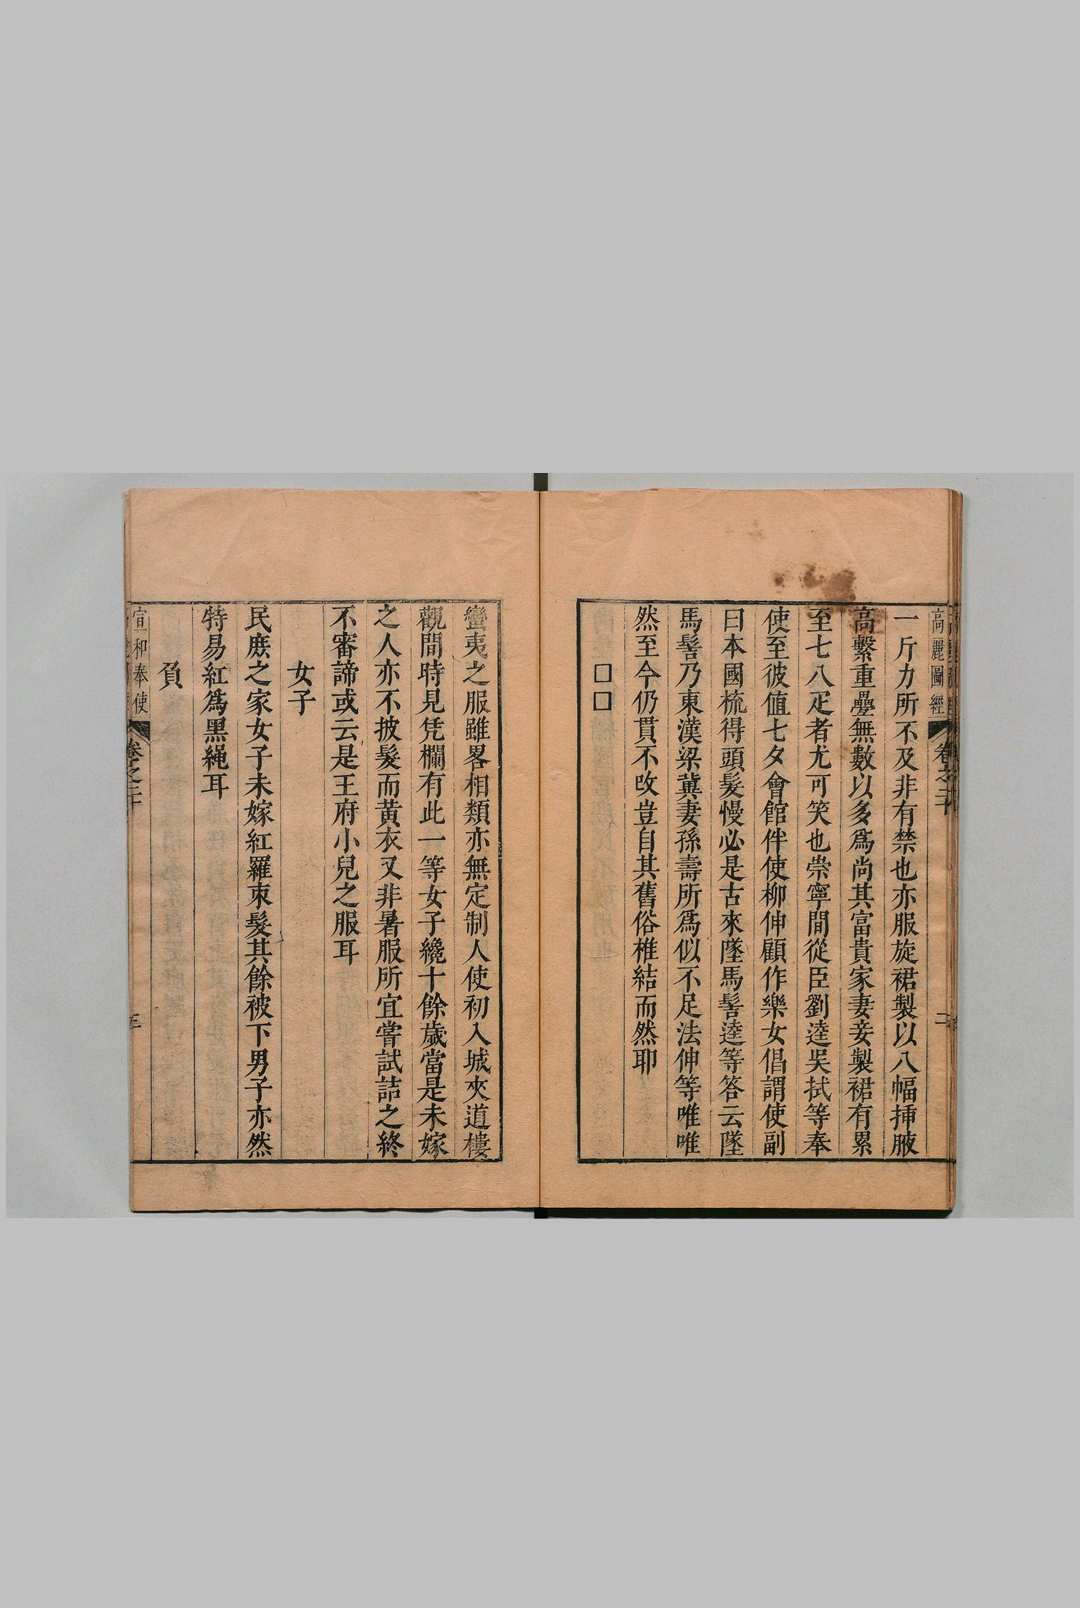 高麗圖經 卷之二十 二
一斤力所不及非有禁也亦服旋裙製以八幅揷腋
高繫重疊無數以多爲尚其富貴家妻妾製裙有累
至七八疋者尤可笑也崇寧間從臣劉逵吳拭等奉
使至彼値七夕會館伴使柳伸顧作樂女倡謂使副
曰本國梳得頭髮慢必是古來墜馬髻逵等答云墜
馬髻乃東漢梁冀妻孫壽所爲似不足法伸等唯唯
然至今仍貫不改豈自其舊俗椎結而然耶
□□
蠻夷之服雖畧相類亦無定制人使初入城夾道樓
觀間時見凭欄有此一等女子纔十餘歲當是未嫁
之人亦不披髮而黃衣又非暑服所宜嘗試詰之終
不審諦或云是王府小兒之服耳
女子
民庶之家女子未嫁紅羅束髮其餘被下男子亦然
特易紅爲黑繩耳
負
宣和奉使 卷之二十 三